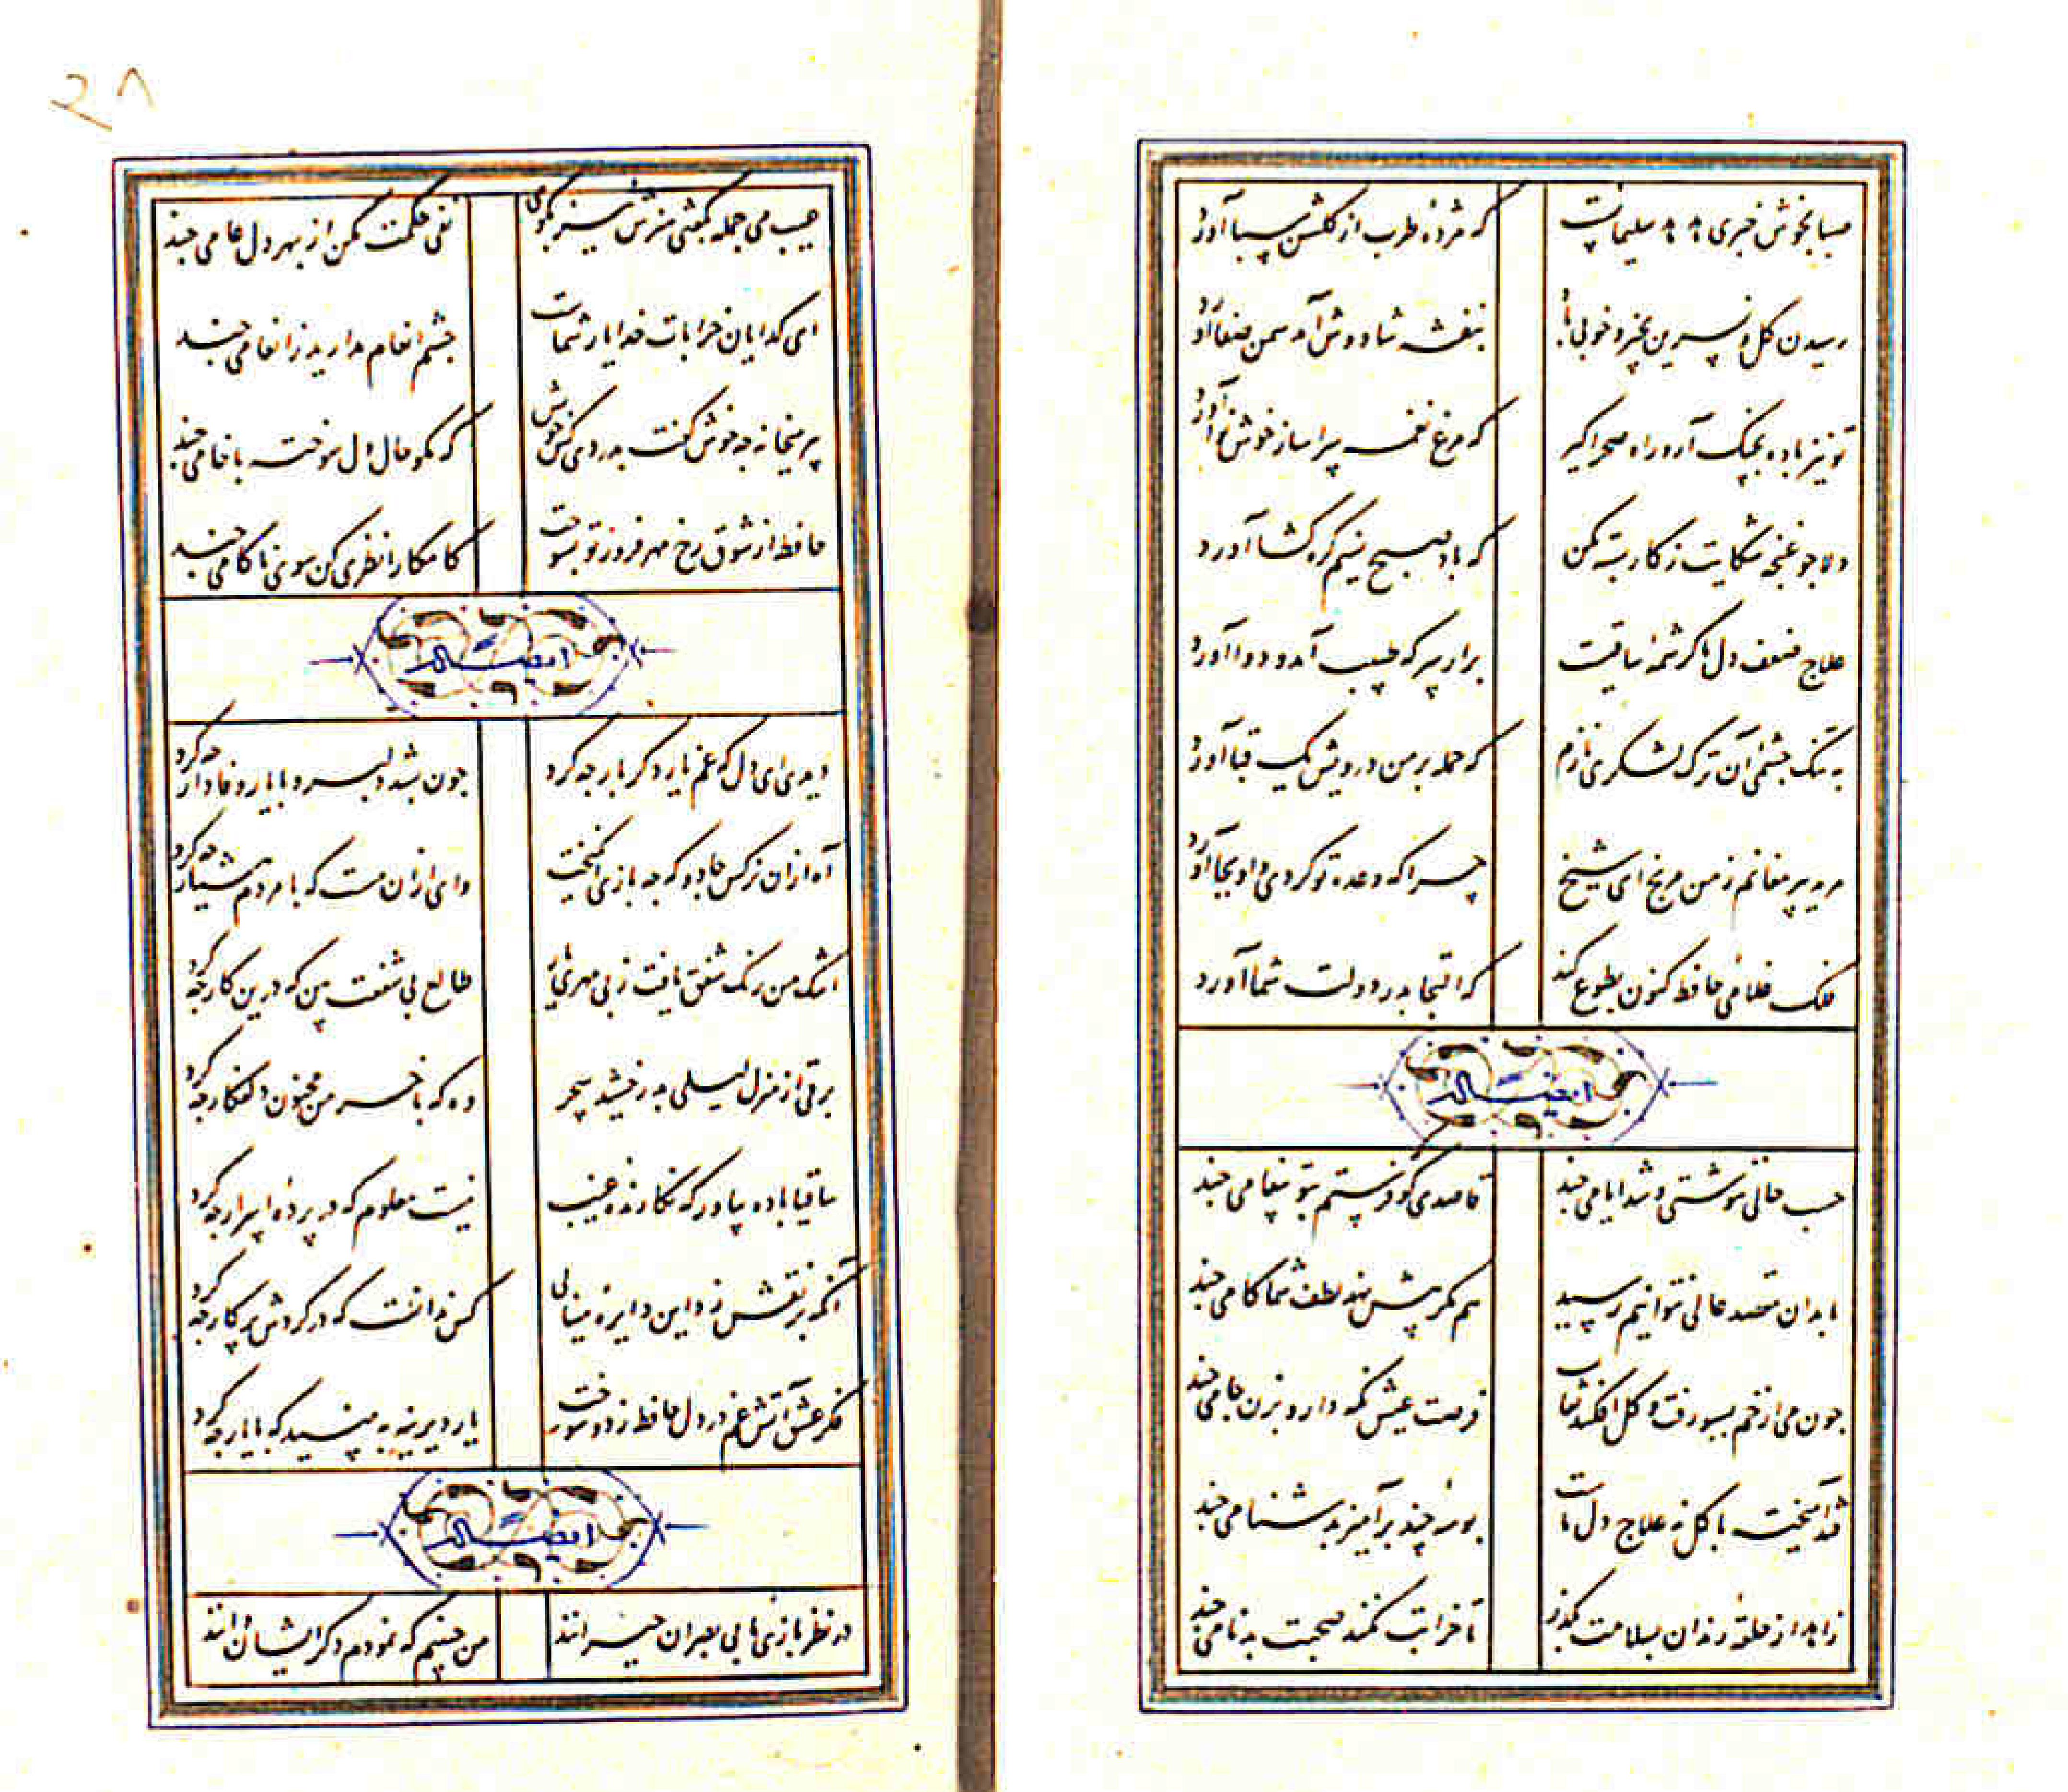 صبا بخوش خبری هدهد سلیمانست
که مژده طرب از گلشن سبا آورد
رسیدن گل و نسرین بخیر و خوبی باد
بنفشه شاد و خوش آمد سمن صفا آورد
تو نیز باده بچنک آر و راه صحرا گیر
که مرغ نغمه سرا ساز خوش نوا آورد
دلا چو غنچه شکایت ز کار بسته مکن
که باد صبح نسیم گره گشا آورد
علاج ضعف دل ما کرشمهٔ ساقیست
برآر سر که طبیب آمد و دوا آورد
به تنک چشمی آن ترک لشکری نازم
که حمله بر من درویش یک قبا آورد
مرید پیر مغانم ز من مرنج ای شیخ
چرا که وعده تو کردی و او بجا آورد
فلک غلامی حافظ کنون بطوع کند
که التجا بدر دولت شما آورد
ایضاً له
حسب حالی ننوشتی و شد ایامی چند
قاصدی کو که فرستم بتو پیغامی چند
ما بدان مقصد عالی نتوانیم رسید
هم مگر پیش نهد لطف شما کامی چند
چون می از خم بسبو رفت و گل افکند نقاب
فرصت عیش نگه دار و بزن جامی چند
قند آمیخته با گل نه علاج دل ماست
بوسهٔ چند برآمیز بدشنامی چند
زاهد از حلقهٔ رندان بسلامت بگذر
تا خرابت نکند صحبت بدنامی چند
۲۸
عیب می جمله بگفتی هنرش نیز بگوی
نفی حکمت مکن از بهر دل عامی چند
ای گدایان خرابات خدا یار شماست
چشم انعام مدارید ز انعامی چند
پیر میخانه چه خوش گفت بدردی کش خویش
که مگو حال دل سوخته با خامی چند
حافظ از شوق رخ مهر فروز تو بسوخت
کامکارا نظری کن سوی ناکامی چند
ایضاً له
دیدی ای دل که غم یار دگر بار چه کرد
چون بشد دلبر و با یار وفادار چه کرد
آه از آن نرگس جادو که چه بازی انگیخت
وای از آن مست که با مردم هشیار چه کرد
اشک من رنک شفق یافت ز بی مهری یار
طالع بی شفقت بین که درین کار چه کرد
برقی از منزل لیلی بدرخشید سحر
وه که با خرمن مجنون دل افکار چه کرد
ساقیا باده بیاور که نگارنده غیب
نیست معلوم که در پردهٔ اسرار چه کرد
آنکه پر نقش زد این دایره مینائی
کس ندانست که در گردش پرگار چه کرد
فکر عشق آتش غم در دل حافظ زد و سوخت
یار دیرینه ببینید که با یار چه کرد
ایضاً له
در نظربازی ما بی بصران حیرانند
من چنینم که نمودم دگر ایشان دانند